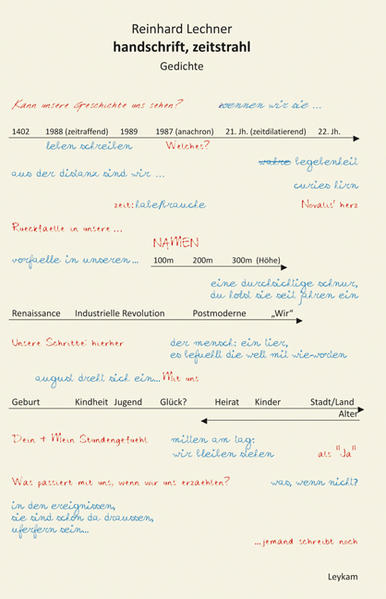 Reinhard Lechner
handschrift, zeitstrahl
Gedichte
Kann unsere Geschichte uns sehen? kennen wir sie ...
1402 1988 (zeitraffend) 1989 1987 (anachron) 21. Jh. (zeitdilatierend) 22. Jh.
leben schreiben Welches?
wahre begebenheit
aus der distanz sind wir ...
curies hirn
zeit: halsfrauche Novalis' herz
Rueckfaelle in unsere ...
NAMEN
vorfaelle in unseren... 100m 200m 300m (Höhe)
eine durchsichtige schnur,
du holst sie seit jahren ein
Renaissance Industrielle Revolution Postmoderne „Wir"
Unsere Schritte: hierher der mensch: ein tier,
es befuellt die welt mit wie-worden
august dreht sich ein... Mit uns
Geburt Kindheit Jugend Glück? Heirat Kinder Stadt/Land
Alter
Dein + Mein Stundengefuehl mitten am tag:
wir bleiben stehen als "Ja"
Was passiert mit uns, wenn wir uns erzaehlen? was, wenn nicht?
in den ereignissen,
sie sind schon da draussen,
uferfern sein...
...jemand schreibt noch
Leykam